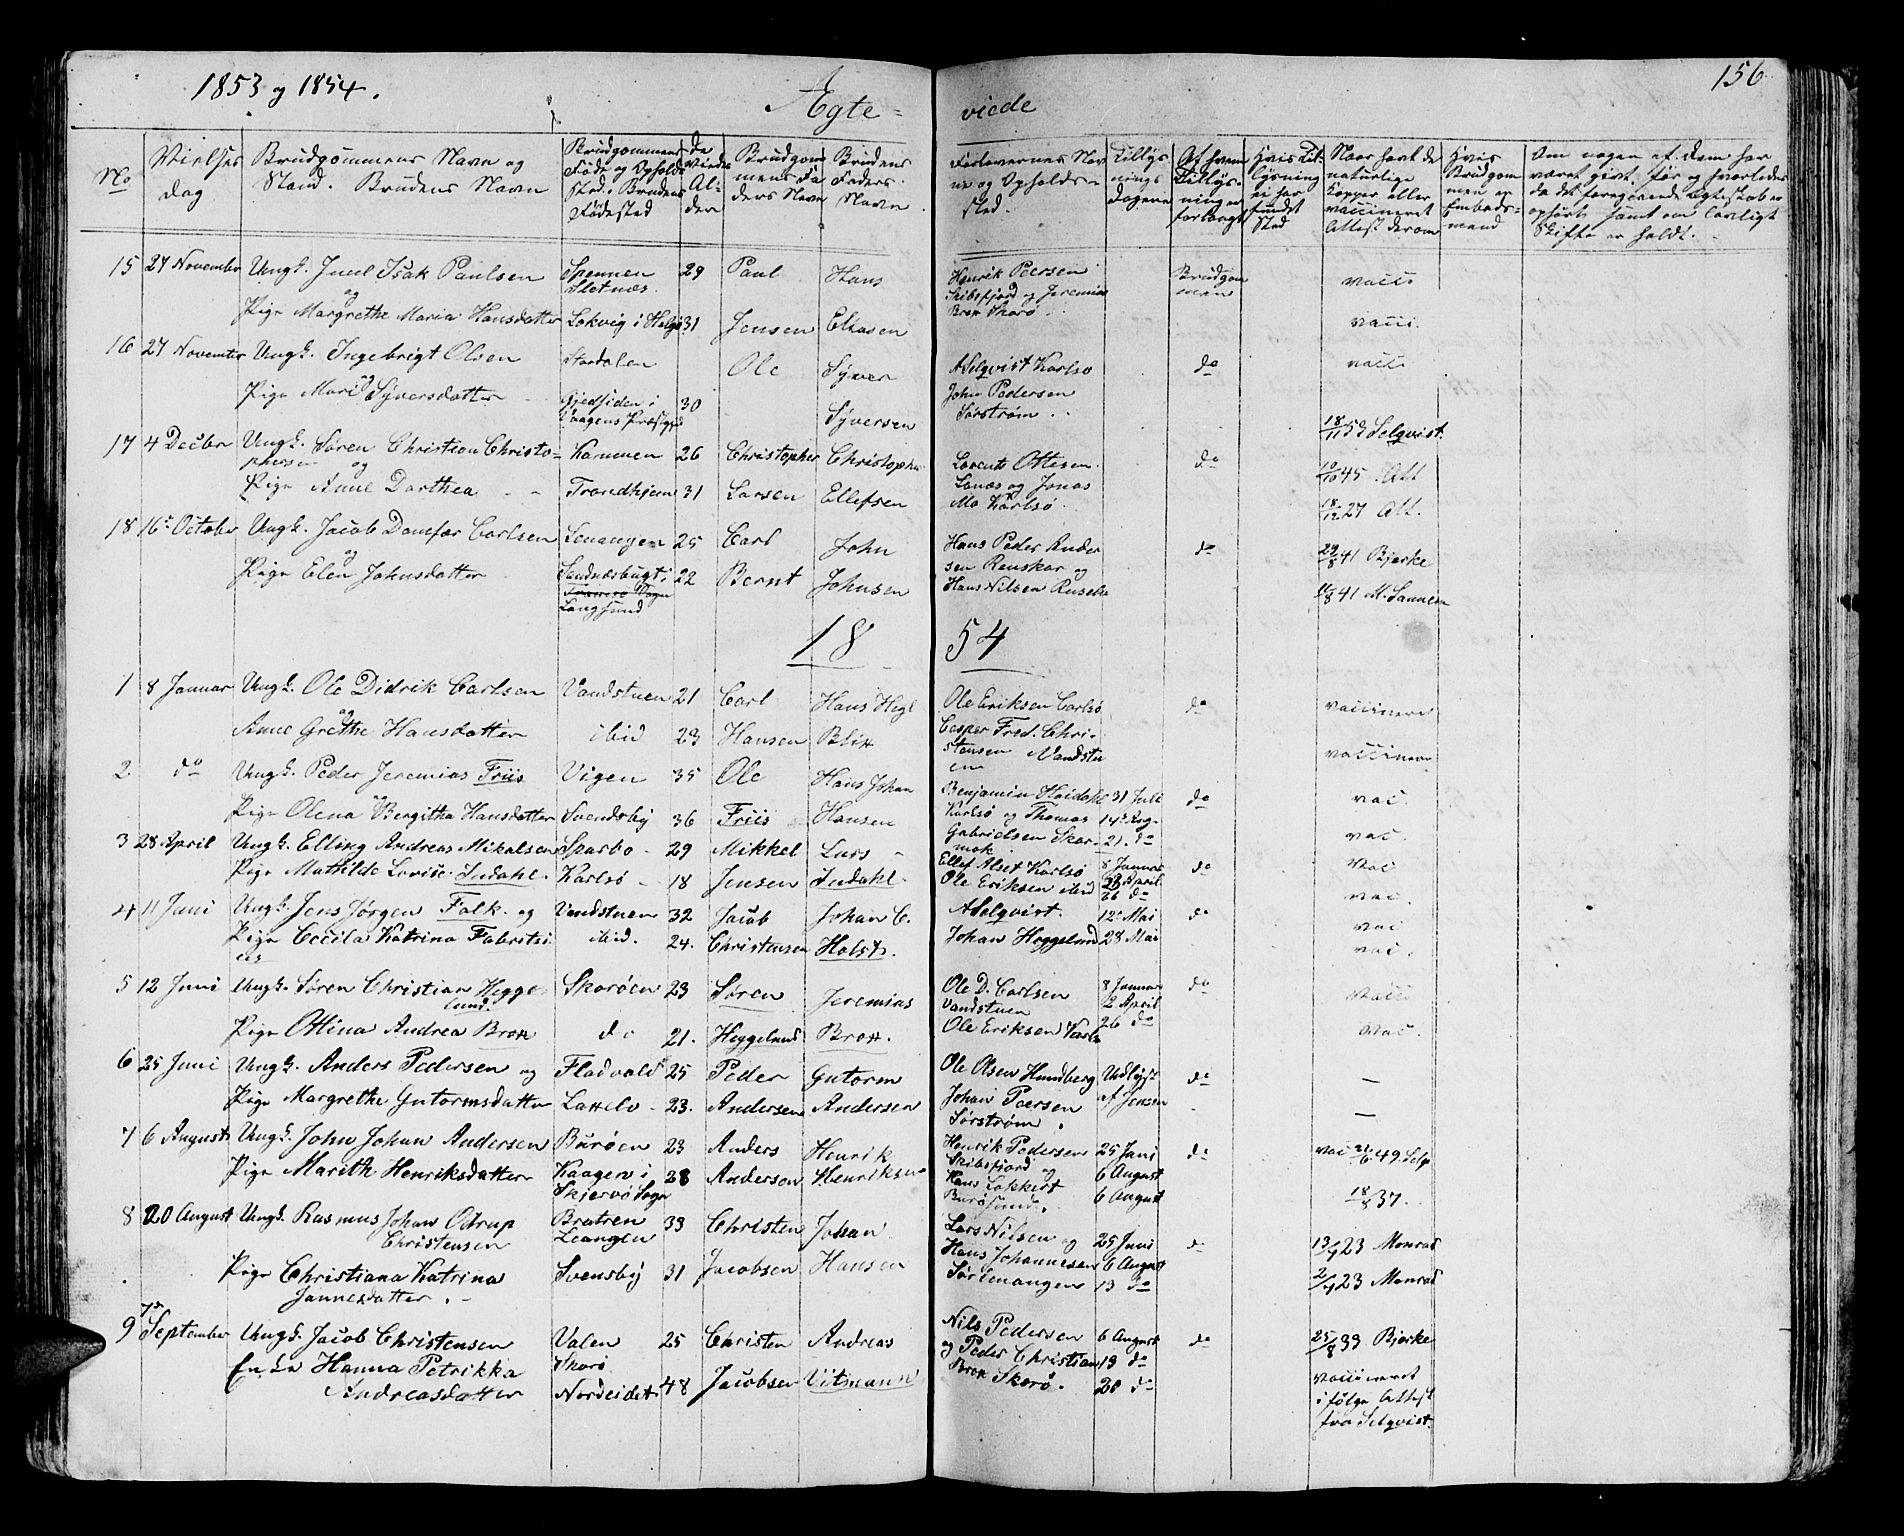 1853 og 1854.
Ægte-
viede
156
No
Vielses Dag
Brudgommens Navn og Stand. Brudens Navn
Brudgommens Føde og Opholds Sted. Brudens Fødested
De Viedes Alder
Brudgommens Faders Navn
Brudens Faders Navn
Forlovernes Navne og Opholdssted
Tillysnings Dagene
Af hvem Tillysningen forlangt
Hvis Tillysning ei har fundet Sted
Naar havt de naturlige Kopper eller vaccineret Attest derom
Hvis Brudgommen er Embedsmand
Om nogen af Dem har været givt før og hvorledes da det foregaaende Ægteskab er ophørt samt om lovligt Skifte er holdt.
15 27 November Ungk. Juul Isak Paulsen Spennen Sletnæs 29 Paul Hans Henrik Peersen Brudgommen vacci
og Pige Margrethe Maria Hansdatter Lokvig i Helgø 31 Jensen Eliasen Skibsfjord og Jeremias Brox Skorø vacci.
16 27 November Ungk. Ingebrigt Olsen Stordalen Ole Syver A Selqvist Karlsø do vacci
og Pige Mari Syversdatter 30 Syversen John Pedersen Sørstrøm 18/11 53 Selqvist.
17 4 Decbr Ungk. Søren Christian Christophersen og Kammen 26 Christopher Christopher Lorents Ottesen do 10/10 45. Att
Pige Anne Dorthea Trondhjem 31 Larsen Ellefsen Lanæs og Jonas Mo Karlsø 18/12 27 Att.
18 16 October Ungk. Jacob Damfær Carlsen Lenangen 25 Carl John Hans Peder Andersen Renskar og do 29/8 41 Bjerke
og Pige Elen Johnsdatter Sandnæsbugt i Tromsø Sogn Langsund 22 Bernt Johnsen Hans Nilsen 41 M. Sannem
1854
1 8 Januar Ungk. Ole Didrik Carlsen Vandstuen 21 Carl Hans Hegl Ole Eriksen Carlsø do vaccineret
og Anne Grethe Hansdatter ibid 23 Hansen Blix Casper Fred. Christensen Vandstuen vaccinere
2 do Ungk. Peder Jeremias Friis Vigen 35 Ole Hans Johan Benjamin Heidahl 31 Juli do vac.
og Pige Olena Bergitha Hansdatter Svendsby 36 Friis Hansen Karlsø og Thomas Gabrielsen Skarmok 14 Aug. 21. do vac.
3 28 April Ungk. Elling Andreas Mikalsen Sparbo 29 Mikkel Lars Ellef Alset Karlsø 8 Januar do vac
Pige Mathilde Lovise Indahl. Karlsø 18 Jensen Indahl. Ole Eriksen ibid 23 April 26 do vac.
4 11 Juni Ungk. Jens Jørgen Falk og Vandstuen 32 Jacob Johan C. A Selqvist. 12 Mai do vac
Pige Cecila Katrina Fabritsies ibid. 24. Christensen Holst. Johan Heggelund 28 Mai vac.
5 12 Juni Ungk. Søren Christian Heggelund Skorøen 23 Søren Jeremias Ole D. Carlsen Vandstuen 8 Januar 2 April do vacci
Pige Ottina Andrea Brox do 21. Heggelund Brox. Ole Eriksen Karls 26 do vac.
6 25 Juni Ungk. Anders Pedersen og Fladvold 25 Peder Gutorm Ole Olsen Hundberg Udlyst do —
Pige Margrethe Gutormsdatter Lattelv 23. Andersen Andersen Johan Peersen Sørstrøm. af Jensen —
7 6 August Ungk. John Johan Andersen Burøen 23 Anders Henrik Henrik Pedersen Skibsfjord og 25 Juni do vac 21/6 49. Selq
Pige Marith Henriksdatter Kaagen i Skjervø Sogn 28 Andersen Henriksen Hans Lokkert Burøsund. 6 August 6 August 18/8 37.
8 20 August Ungk. Rasmus Johan Odrup Christensen Bratren Leangen 33 Christen Johan Lars Nilsen og 25 Juni do 13/9 23 Monrad
Pige Christiana Katrina Jannesdatter. Svensby 31 Jacobsen Hansen Hans Johannesen Sørlenangen 6 August 13 do 2/9 23 Monrad
9 7de September Ungk. Jacob Christensen Valen Skorø 25 Christen Andreas Nils Pedersen 6 August do 25/8 33 Bjerke
Enke Hanna Petrikka Andreasdatter Nordeidet 48 Jacobsen Vitmann og Peder Christian Brox Skorø. 13 do 20 do vaccineret ifølge Attest fra Selqvist.